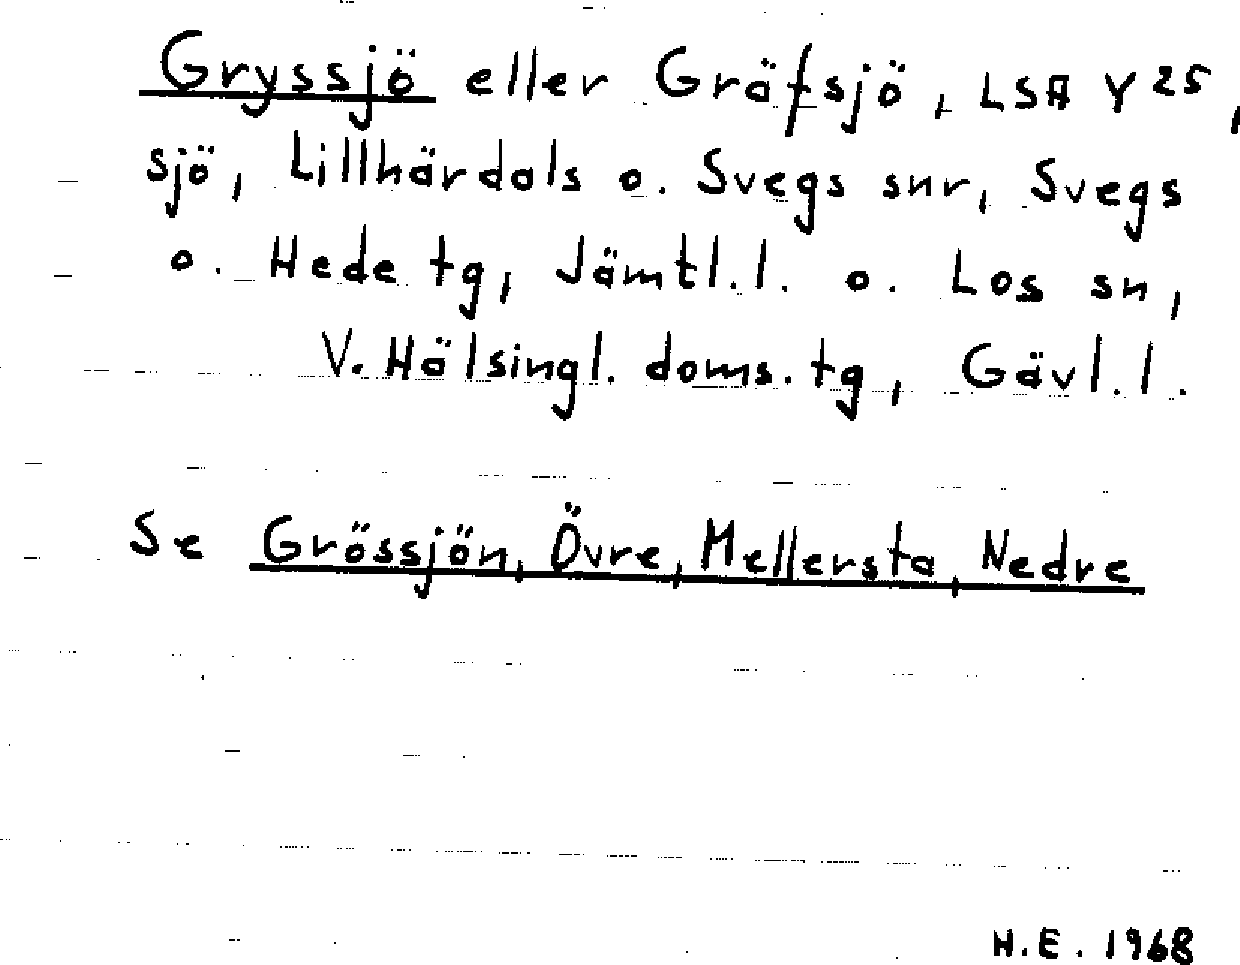 Gryssjö eller Gräfsjö, LSA Y25,
sjö, Lillhärdals o. Svegs snr, Svegs
o. Hede tg, Jämtl.l. o. Los sn,
V. Hälsingl. doms. tg, Gävl.l.
Se Grössjön, Övre, Mellersta, Nedre
H.E. 1968